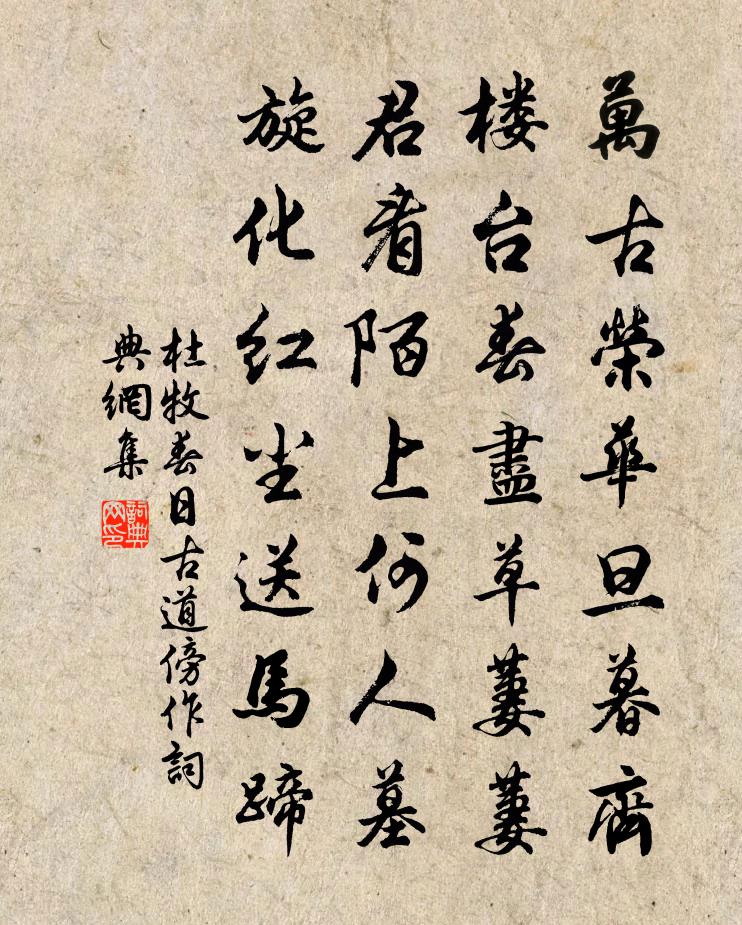 萬古榮華旦暮齊
楼台春盡草萋萋
君看陌上何人墓
旋化红尘送馬蹄
杜牧春日古道傍作詞
典網集
詞典
网印